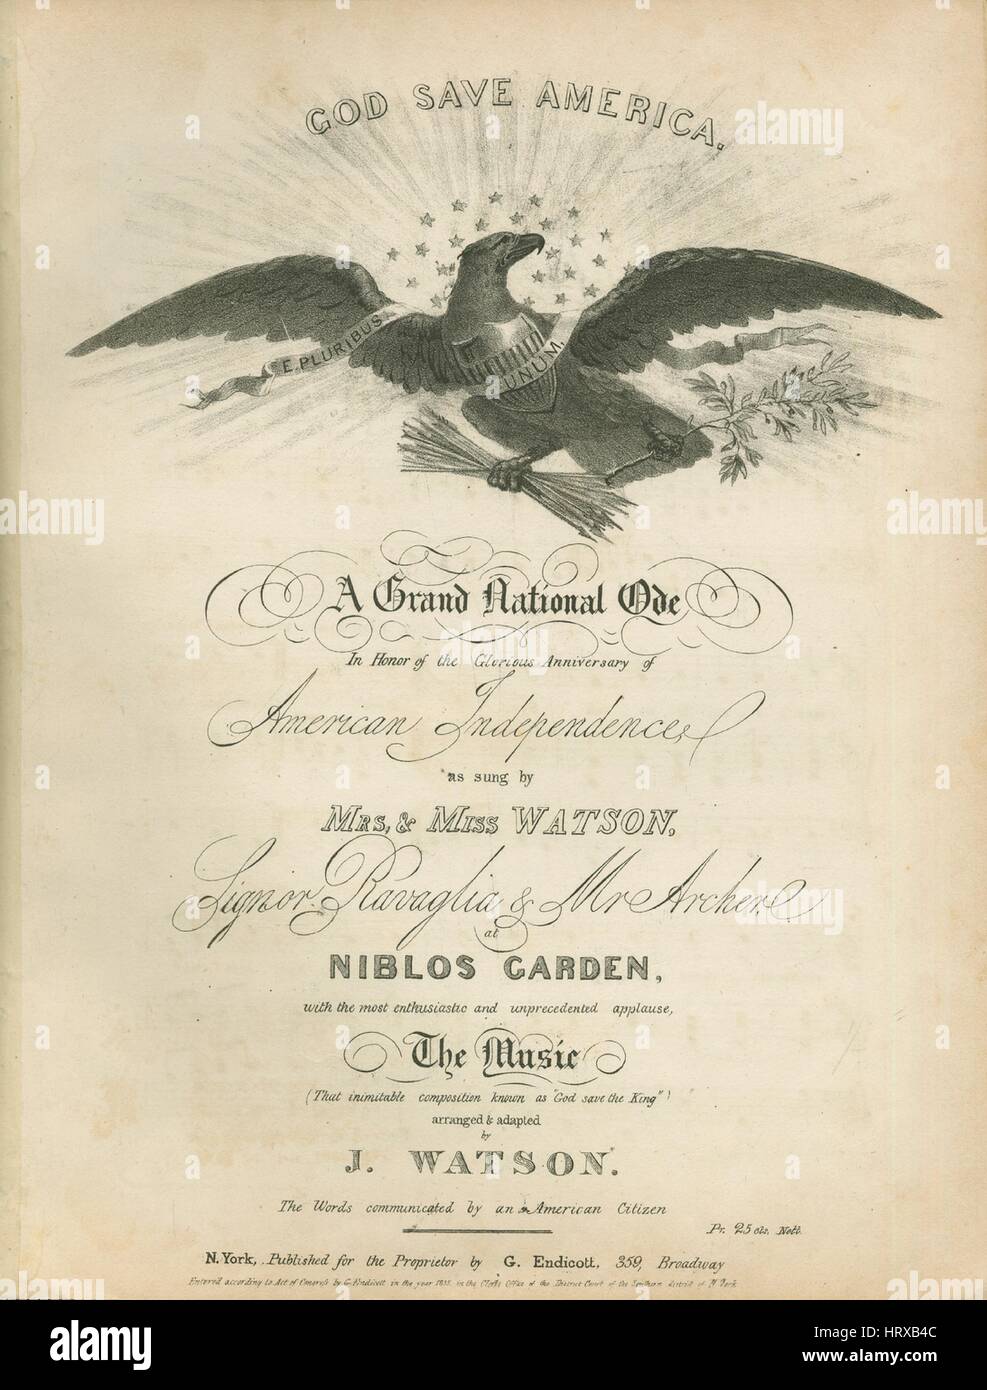 GOD SAVE AMERICA.
E. PLURIBUS
UNUM.
A Grand National Ode
In Honor of the Glorious Anniversary of
American Independence,
as sung by
MRS, & MISS WATSON,
Signor. Ravaglia & Mr Archer.
at
NIBLOS GARDEN,
with the most enthusiastic and unprecedented applause,
The Music
(That inimitable composition known as "God save the King")
arranged & adapted
by
J. WATSON.
The Words communicated by an American Citizen
Pr. 25 cts. Nett.
N. York, Published for the Proprietor by G. Endicott, 359, Broadway
Entered according to Act of Congress by G. Endicott in the year 1835, in the Clerks Office of the District Court of the Southern district of N York
a alamy stock photo
alamy
HRXB4C
www.alamy.com